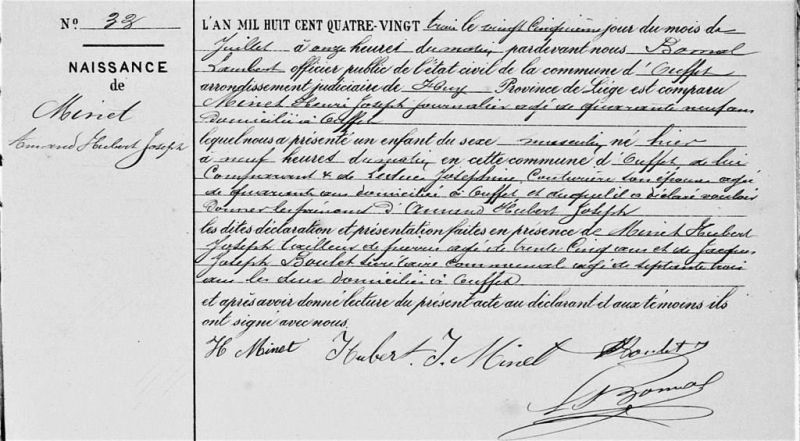 N° 32
NAISSANCE
de
Minet
Armand Hubert Joseph
L'AN MIL HUIT CENT QUATRE-VINGT trois le vingt cinquième jour du mois de
Juillet à onze heures du matin pardevant nous Bomal
Lambert officier public de l'état civil de la commune d'Ouffet
arrondissement judiciaire de Huy Province de Liège est comparu
Minet Henri Joseph journalier agé de quarante neuf ans
domicilié à Ouffet
lequel nous a présenté un enfant du sexe masculin né hier
à neuf heures du matin en cette commune d'Ouffet de lui
Comparant & de Leclerc Joséphine Couturière son épouse agée
de quarante ans domiciliée à Ouffet et auquel il a déclaré vouloir
donner les prénoms d'Armand Hubert Joseph
les dites déclaration et présentation faites en présence de Minet Hubert
Joseph tailleur de pierres agé de trente cinq ans et de Jacques
Joseph Boulet secrétaire communal agé de septante trois
ans les deux domiciliés à Ouffet
et après avoir donné lecture du présent acte au déclarant et aux témoins ils
ont signé avec nous.
H Minet Hubert. J. Minet Boulet
L Bomal